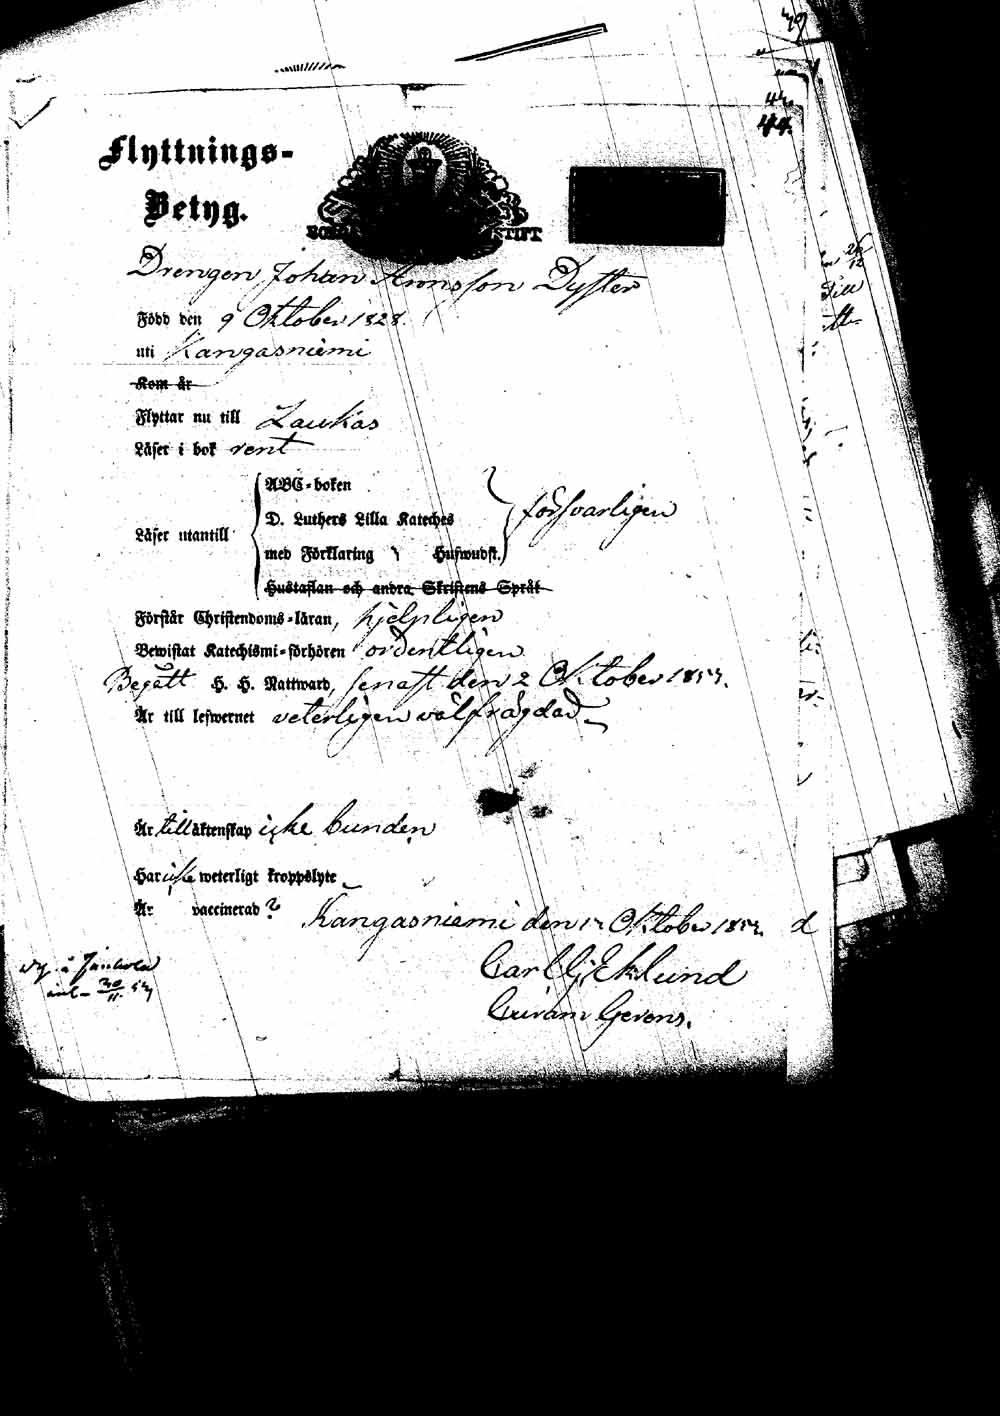 44.
44.
Flyttnings-
Betyg.
STIFT
Drengen Johan Annsson Dyster
Född den 9 Oktober 1828.
uti Kangasniemi
Kom år
Flyttar nu till Laukas
Läser i bok rent
ABC-boken
D. Luthers Lilla Kateches försvarligen
Läser utantill
med Förklaring Huswudst.
Hustaflan och andra Skriftens Språk
Förstår Christendoms-läran, hjelpligen
Bewistat Katechismi-förhören ordentligen
Begått H. H. Nattward, senast den 2 Oktober 1853.
Är till lefwernet veterligen välfrägdad
Är till äktenskap icke bunden
Har icke weterligt kroppslyte
Är vaccinerad?
Kangasniemi den Oktober 1853.
Carl G. Eklund
Curam Gerens.